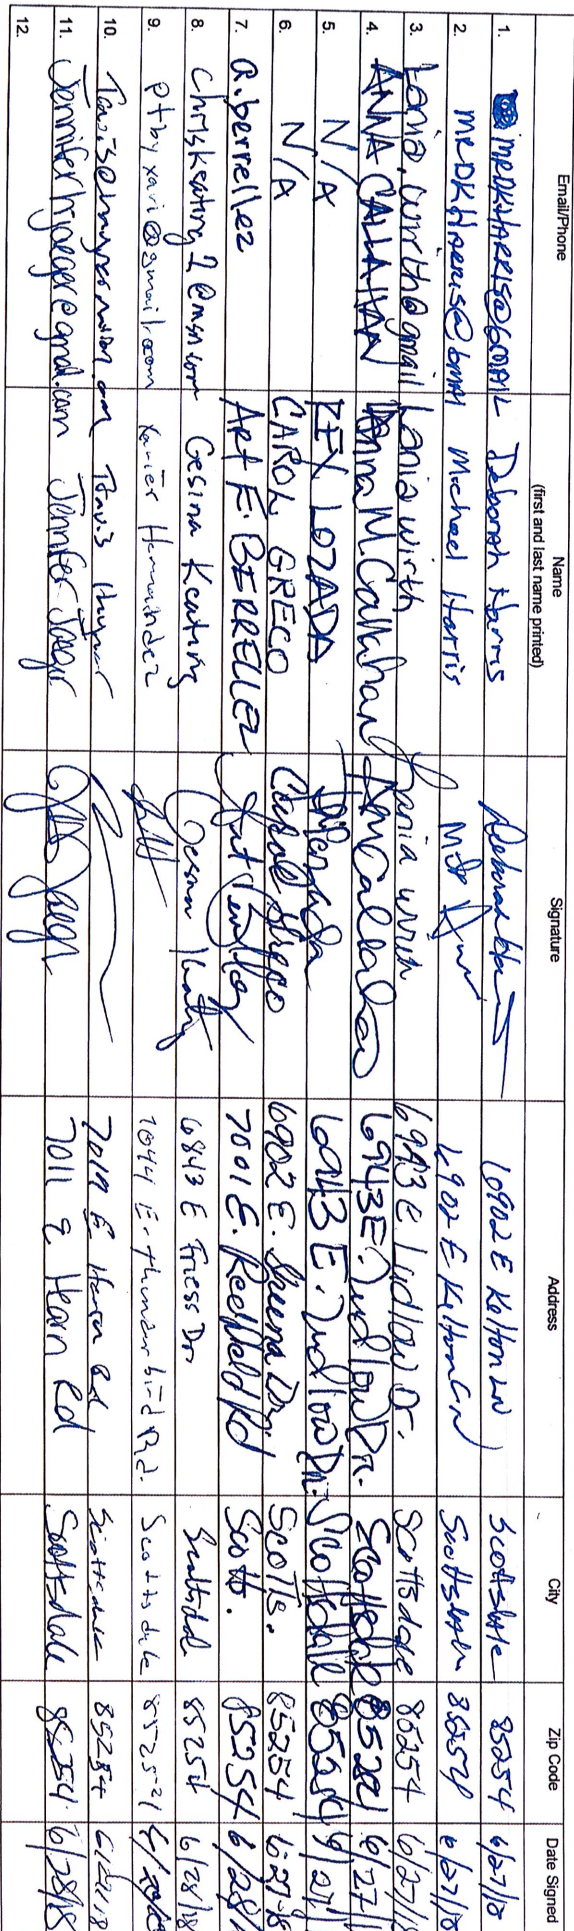 Email/Phone Name (first and last name printed) Signature Address City Zip Code Date Signed
1. MRDKHARRIS@GMAIL Deborah Harris 6902 E Kelton LN Scottsdale 85254 6/27/18
2. MRDKHARRIS@GMAI Michael Harris 6902 E Kelton LN Scottsdale 85254 6/27/18
3. Lania.wirth@gmail Lania Wirth Lania Wirth 6943 E. Ludlow Dr. Scottsdale 85254 6/27/18
4. ANNA CALLAHAN Anna M. Callahan 6943 E. Ludlow Dr. Scottsdale 85254 6/27/
5. N/A REX LOZADA 6943 E. Ludlow Dr. Scottsdale 85254 6/27/
6. N/A CAROL GRECO Carol Greco 6902 E. Sheena Dr. Scotts. 85254 6-27-18
7. a.berrellez Art E. BERRELLEZ 7001 E. Redfield Rd Scotts. 85254 6/28/
8. Chriskeating2@msn.com Gesina Keating Gesina Keating 6843 E Friess Dr Scottsdale 85254 6/28/18
9. ptbyxavi@gmail.com Xavier Hernandez 7044 E. thunderbird Rd. Scottsdale 85254
10. Travis 7019 E. Hearn Rd Scottsdale 85254
11. Jenniferhjaeger@gmail.com Jennifer Jaeger 7011 E Hearn Rd Scottsdale 85254 6/28/18
12.